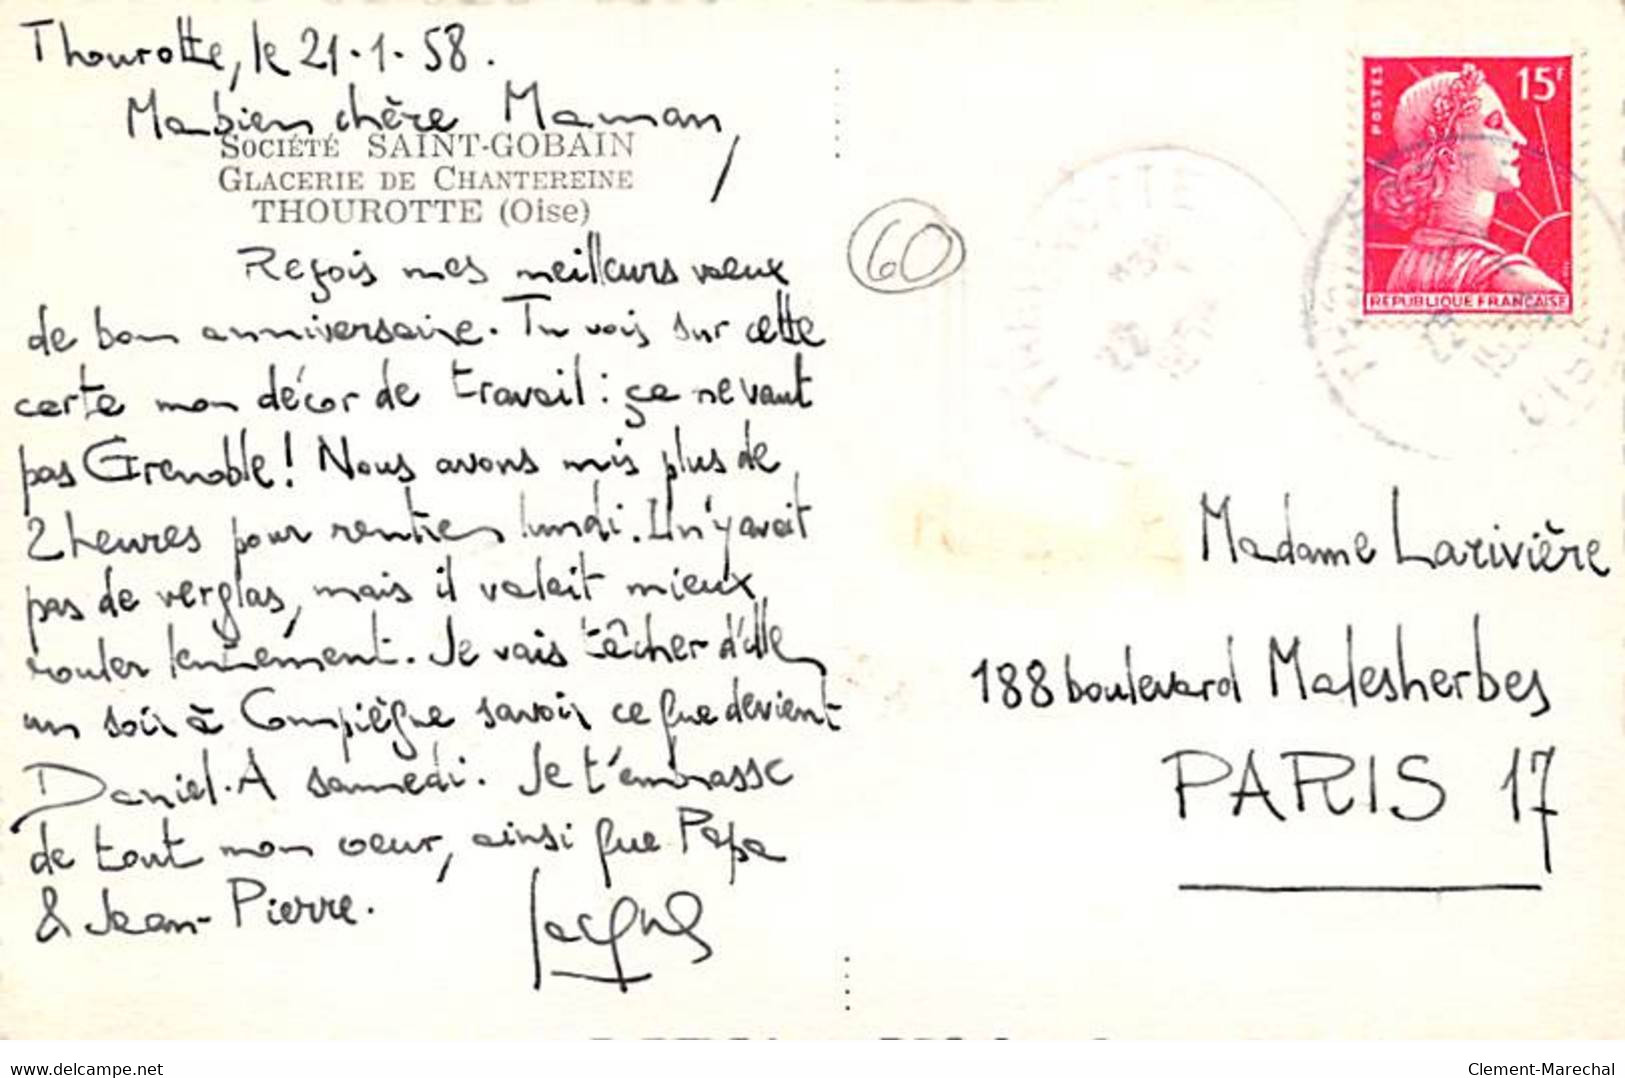 Thourotte, le 21.1.58.
Ma bien chère Maman,
SOCIÉTÉ SAINT-GOBAIN
GLACERIE DE CHANTEREINE
THOUROTTE (Oise)
Reçois mes meilleurs voeux
de bon anniversaire. Tu vois sur cette
carte mon décor de travail : ça ne vaut
pas Grenoble! Nous avons mis plus de
2 heures pour rentrer lundi. Il n'y avait
pas de verglas, mais il valait mieux
rouler lentement. Je vais tâcher d'aller
un soir à Compiègne savoir ce que devient
Daniel. A samedi. Je t'embrasse
de tout mon coeur, ainsi que Papa
& Jean-Pierre.
Jacques
60
POSTES
15F
REPUBLIQUE FRANÇAISE
OISE
Madame Larivière
188 boulevard Malesherbes
PARIS 17
delcampe.net
Clement-Marechal